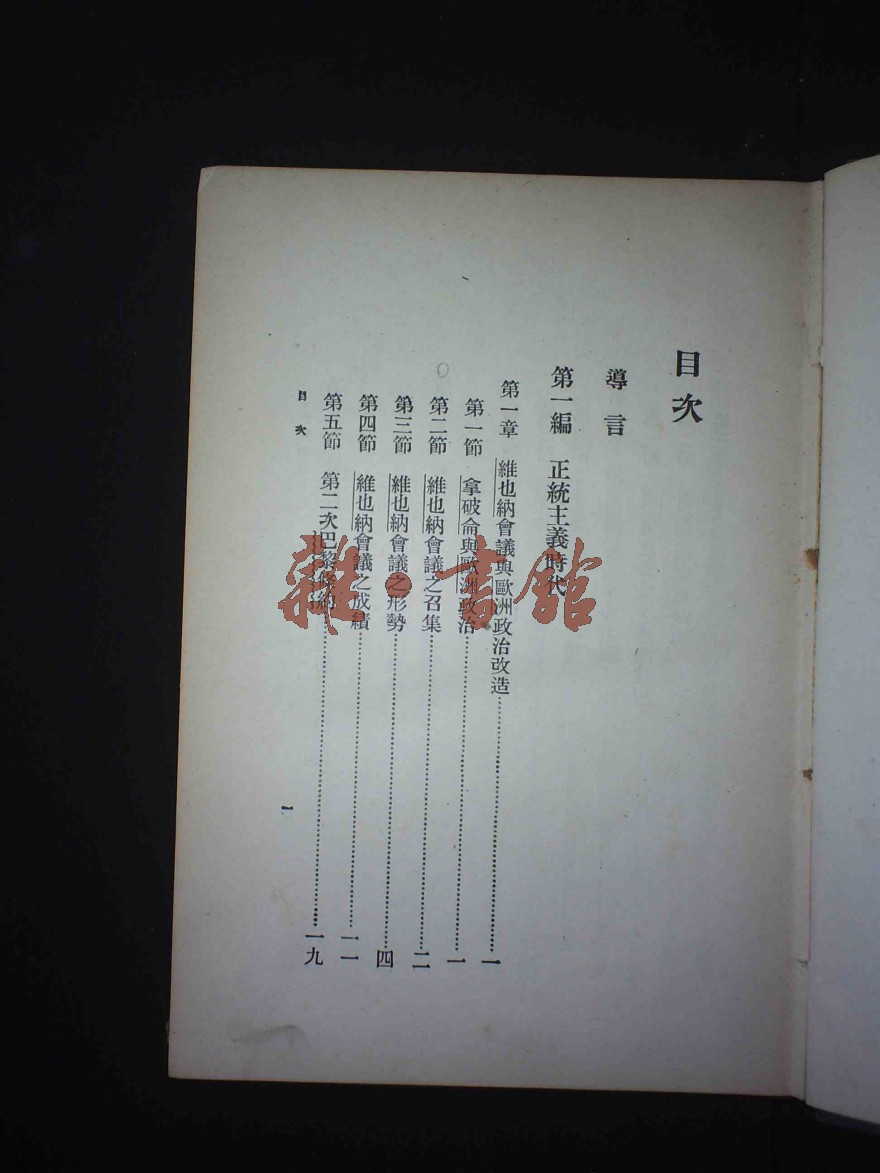 目次
導言
第一編　正統主義時代
第一章　維也納會議與歐洲政治改造……一
第一節　拿破侖與歐洲政治……一
第二節　維也納會議之召集……二
第三節　維也納會議之形勢……四
第四節　維也納會議之成績……一一
第五節　第二次巴黎條約……一九
目次　一
雜·書館